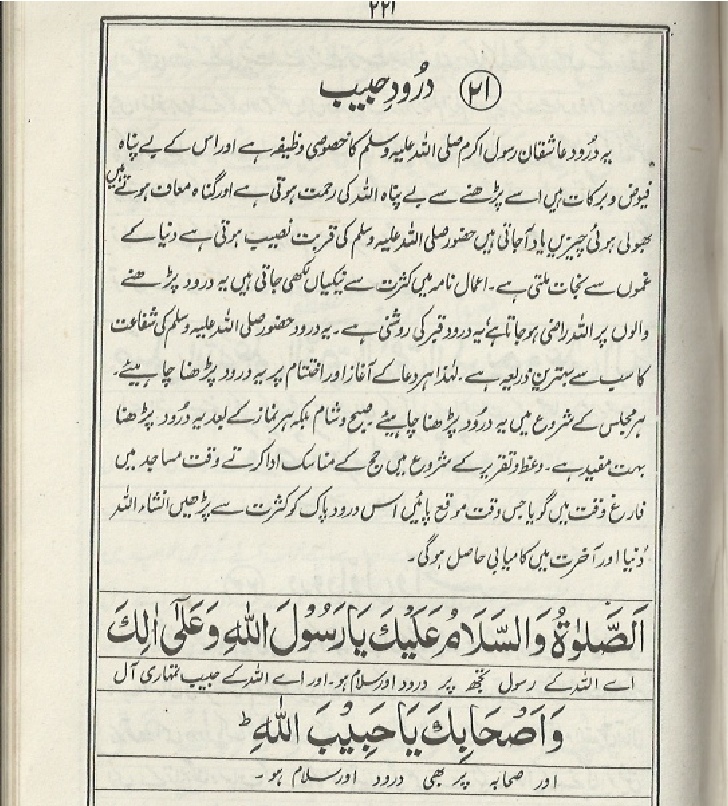 ۲۲۱
۲۱ درُودِ حبیب
یہ درُود عاشقان رسول اکرم صلی اللہ علیہ وسلم کا خصوصی وظیفہ ہے اور اس کے بے پناہ
فیوض و برکات ہیں اسے پڑھنے سے بے پناہ اللہ کی رحمت ہوتی ہے اور گناہ معاف ہوتے ہیں
بھولی ہوئی چیزیں یاد آجاتی ہیں حضور صلی اللہ علیہ وسلم کی قربت نصیب ہوتی ہے دنیا کے
غموں سے نجات ملتی ہے۔ اعمال نامہ میں کثرت سے نیکیاں لکھی جاتی ہیں یہ درود پڑھنے
والوں پر اللہ راضی ہو جاتا ہے یہ درود قبر کی روشنی ہے۔ یہ درود حضور صلی اللہ علیہ وسلم کی شفاعت
کا سب سے بہترین ذریعہ ہے۔ لہٰذا ہر دعا کے آغاز اور اختتام پر یہ درود پڑھنا چاہیئے۔
ہر مجلس کے شروع میں یہ درُود پڑھنا چاہیئے صبح و شام بلکہ ہر نماز کے بعد یہ درُود پڑھنا
بہت مفید ہے۔ وعظ و تقریر کے شروع میں حج کے مناسک ادا کرتے وقت مساجد میں
فارغ وقت میں گویا جس وقت موقع پائیں اس درود پاک کو کثرت سے پڑھیں انشاء اللہ
دُنیا اور آخرت میں کامیابی حاصل ہوگی۔
اَلصَّلٰوۃُ وَالسَّلَامُ عَلَیْكَ یَا رَسُوْلَ اللّٰہِ وَعَلٰٓی اٰلِكَ
اے اللہ کے رسول تجھ پر درود اور سلام ہو۔ اور اے اللہ کے حبیب تمہاری آل
وَاَصْحَابِكَ یَا حَبِیْبَ اللّٰہِ ؕ
اور صحابہ پر بھی درود اور سلام ہو۔